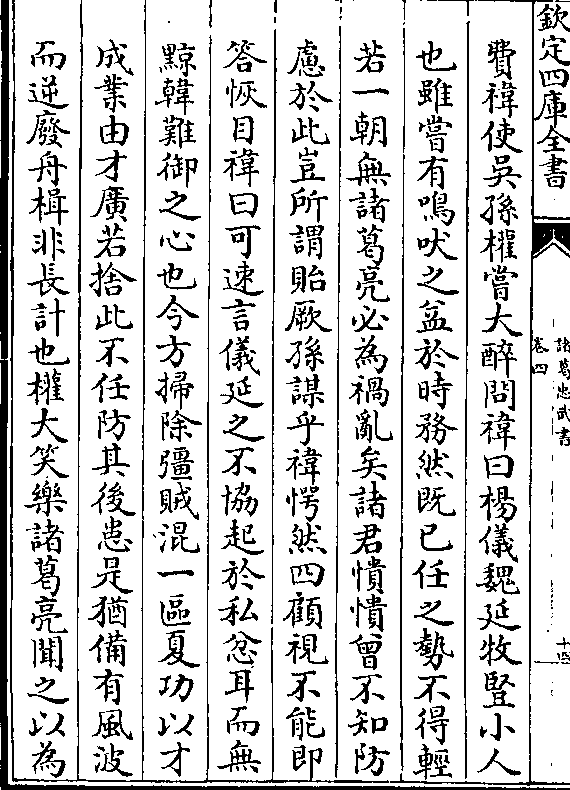 欽定四庫全書
諸葛忠武書
卷四
十四
費禕使吳孫權嘗大醉問禕曰楊儀魏延牧豎小人
也雖嘗有鳴吠之益於時務然既已任之勢不得輕
若一朝無諸葛亮必為禍亂矣諸君憒憒曾不知防
慮於此豈所謂貽厥孫謀乎禕愕然四顧視不能即
答恢目禕曰可速言儀延之不協起於私忿耳而無
黥韓難御之心也今方掃除彊賊混一區夏功以才
成業由才廣若捨此不任防其後患是猶備有風波
而逆廢舟楫非長計也權大笑樂諸葛亮聞之以為